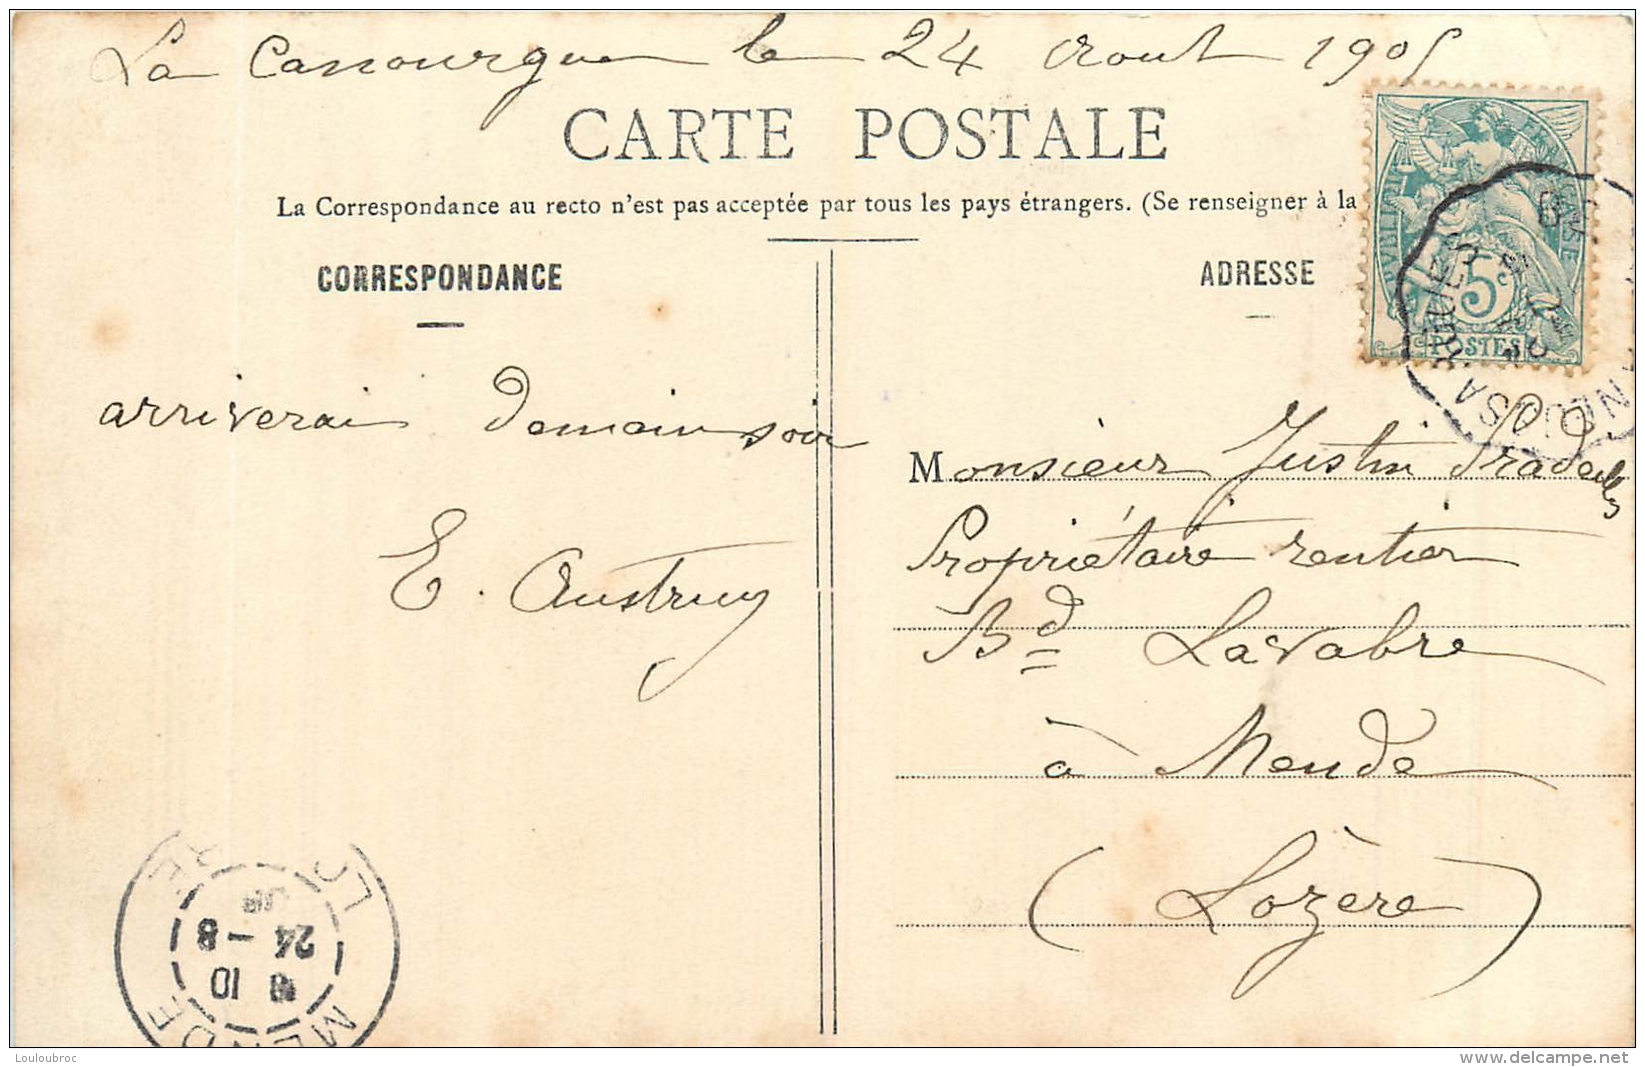 La Canourgue le 24 Aout 1905
CARTE POSTALE
La Correspondance au recto n'est pas acceptée par tous les pays étrangers. (Se renseigner à la
CORRESPONDANCE
arriverai demain soir
E. Austruy
ADRESSE
Monsieur Justin Pradeilles
Propriétaire rentier
Bd Lavabre
à Mende
(Lozère)
5c
POSTES
MENDE
8 10
24 - 8
LOZERE
Louloubroc
www.delcampe.net